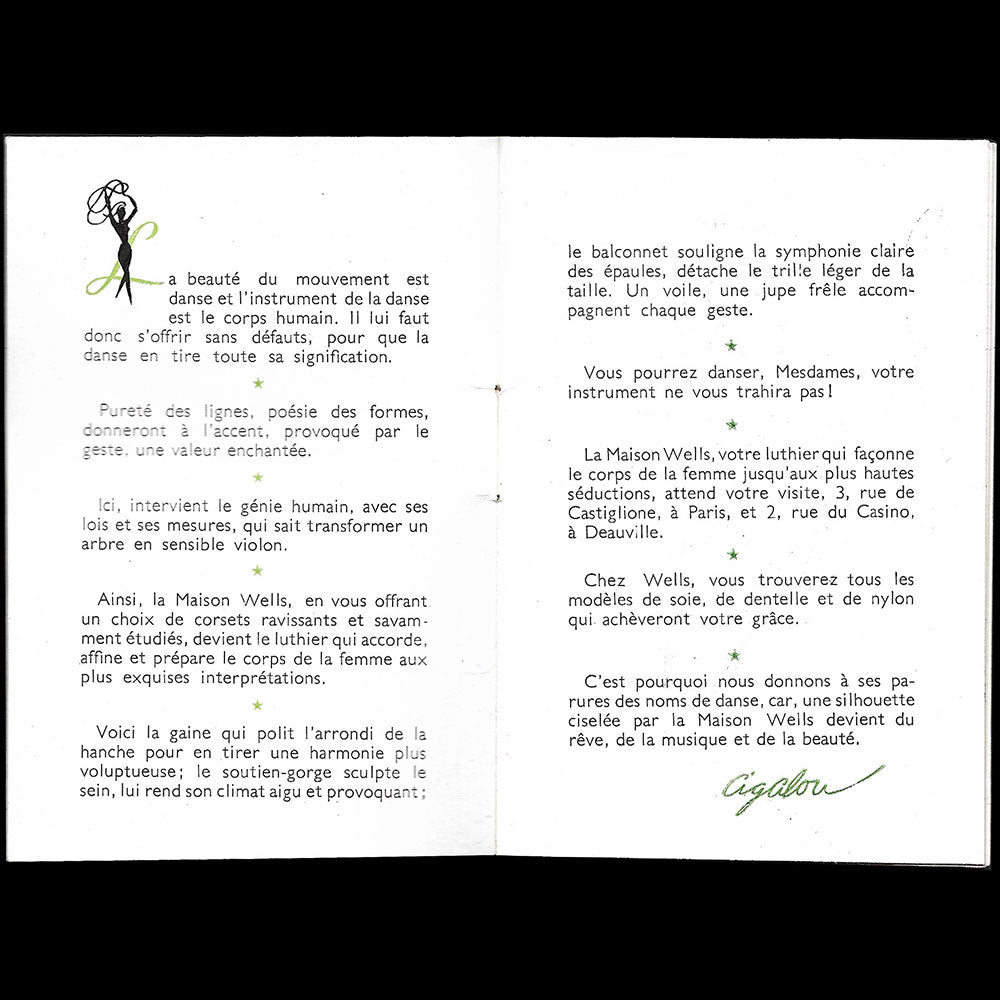 La beauté du mouvement est
danse et l'instrument de la danse
est le corps humain. Il lui faut
donc s'offrir sans défauts, pour que la
danse en tire toute sa signification.
Pureté des lignes, poésie des formes,
donneront à l'accent, provoqué par le
geste, une valeur enchantée.
Ici, intervient le génie humain, avec ses
lois et ses mesures, qui sait transformer un
arbre en sensible violon.
Ainsi, la Maison Wells, en vous offrant
un choix de corsets ravissants et savam-
ment étudiés, devient le luthier qui accorde,
affine et prépare le corps de la femme aux
plus exquises interprétations.
Voici la gaine qui polit l'arrondi de la
hanche pour en tirer une harmonie plus
voluptueuse; le soutien-gorge sculpte le
sein, lui rend son climat aigu et provoquant;
le balconnet souligne la symphonie claire
des épaules, détache le trille léger de la
taille. Un voile, une jupe frêle accom-
pagnent chaque geste.
Vous pourrez danser, Mesdames, votre
instrument ne vous trahira pas!
La Maison Wells, votre luthier qui façonne
le corps de la femme jusqu'aux plus hautes
séductions, attend votre visite, 3, rue de
Castiglione, à Paris, et 2, rue du Casino,
à Deauville.
Chez Wells, vous trouverez tous les
modèles de soie, de dentelle et de nylon
qui achèveront votre grâce.
C'est pourquoi nous donnons à ses pa-
rures des noms de danse, car, une silhouette
ciselée par la Maison Wells devient du
rêve, de la musique et de la beauté.
Cigalou